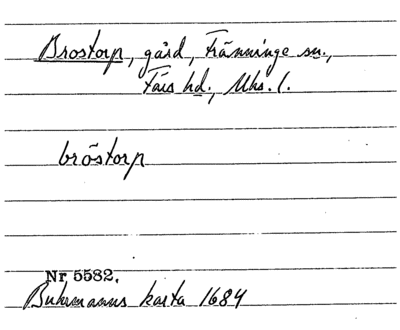 Brostorp, gård, Fränninge sn.,
Färs hd., Mhs. l.
bröstorp
Nr 5582.
Buhrmanns karta 1684